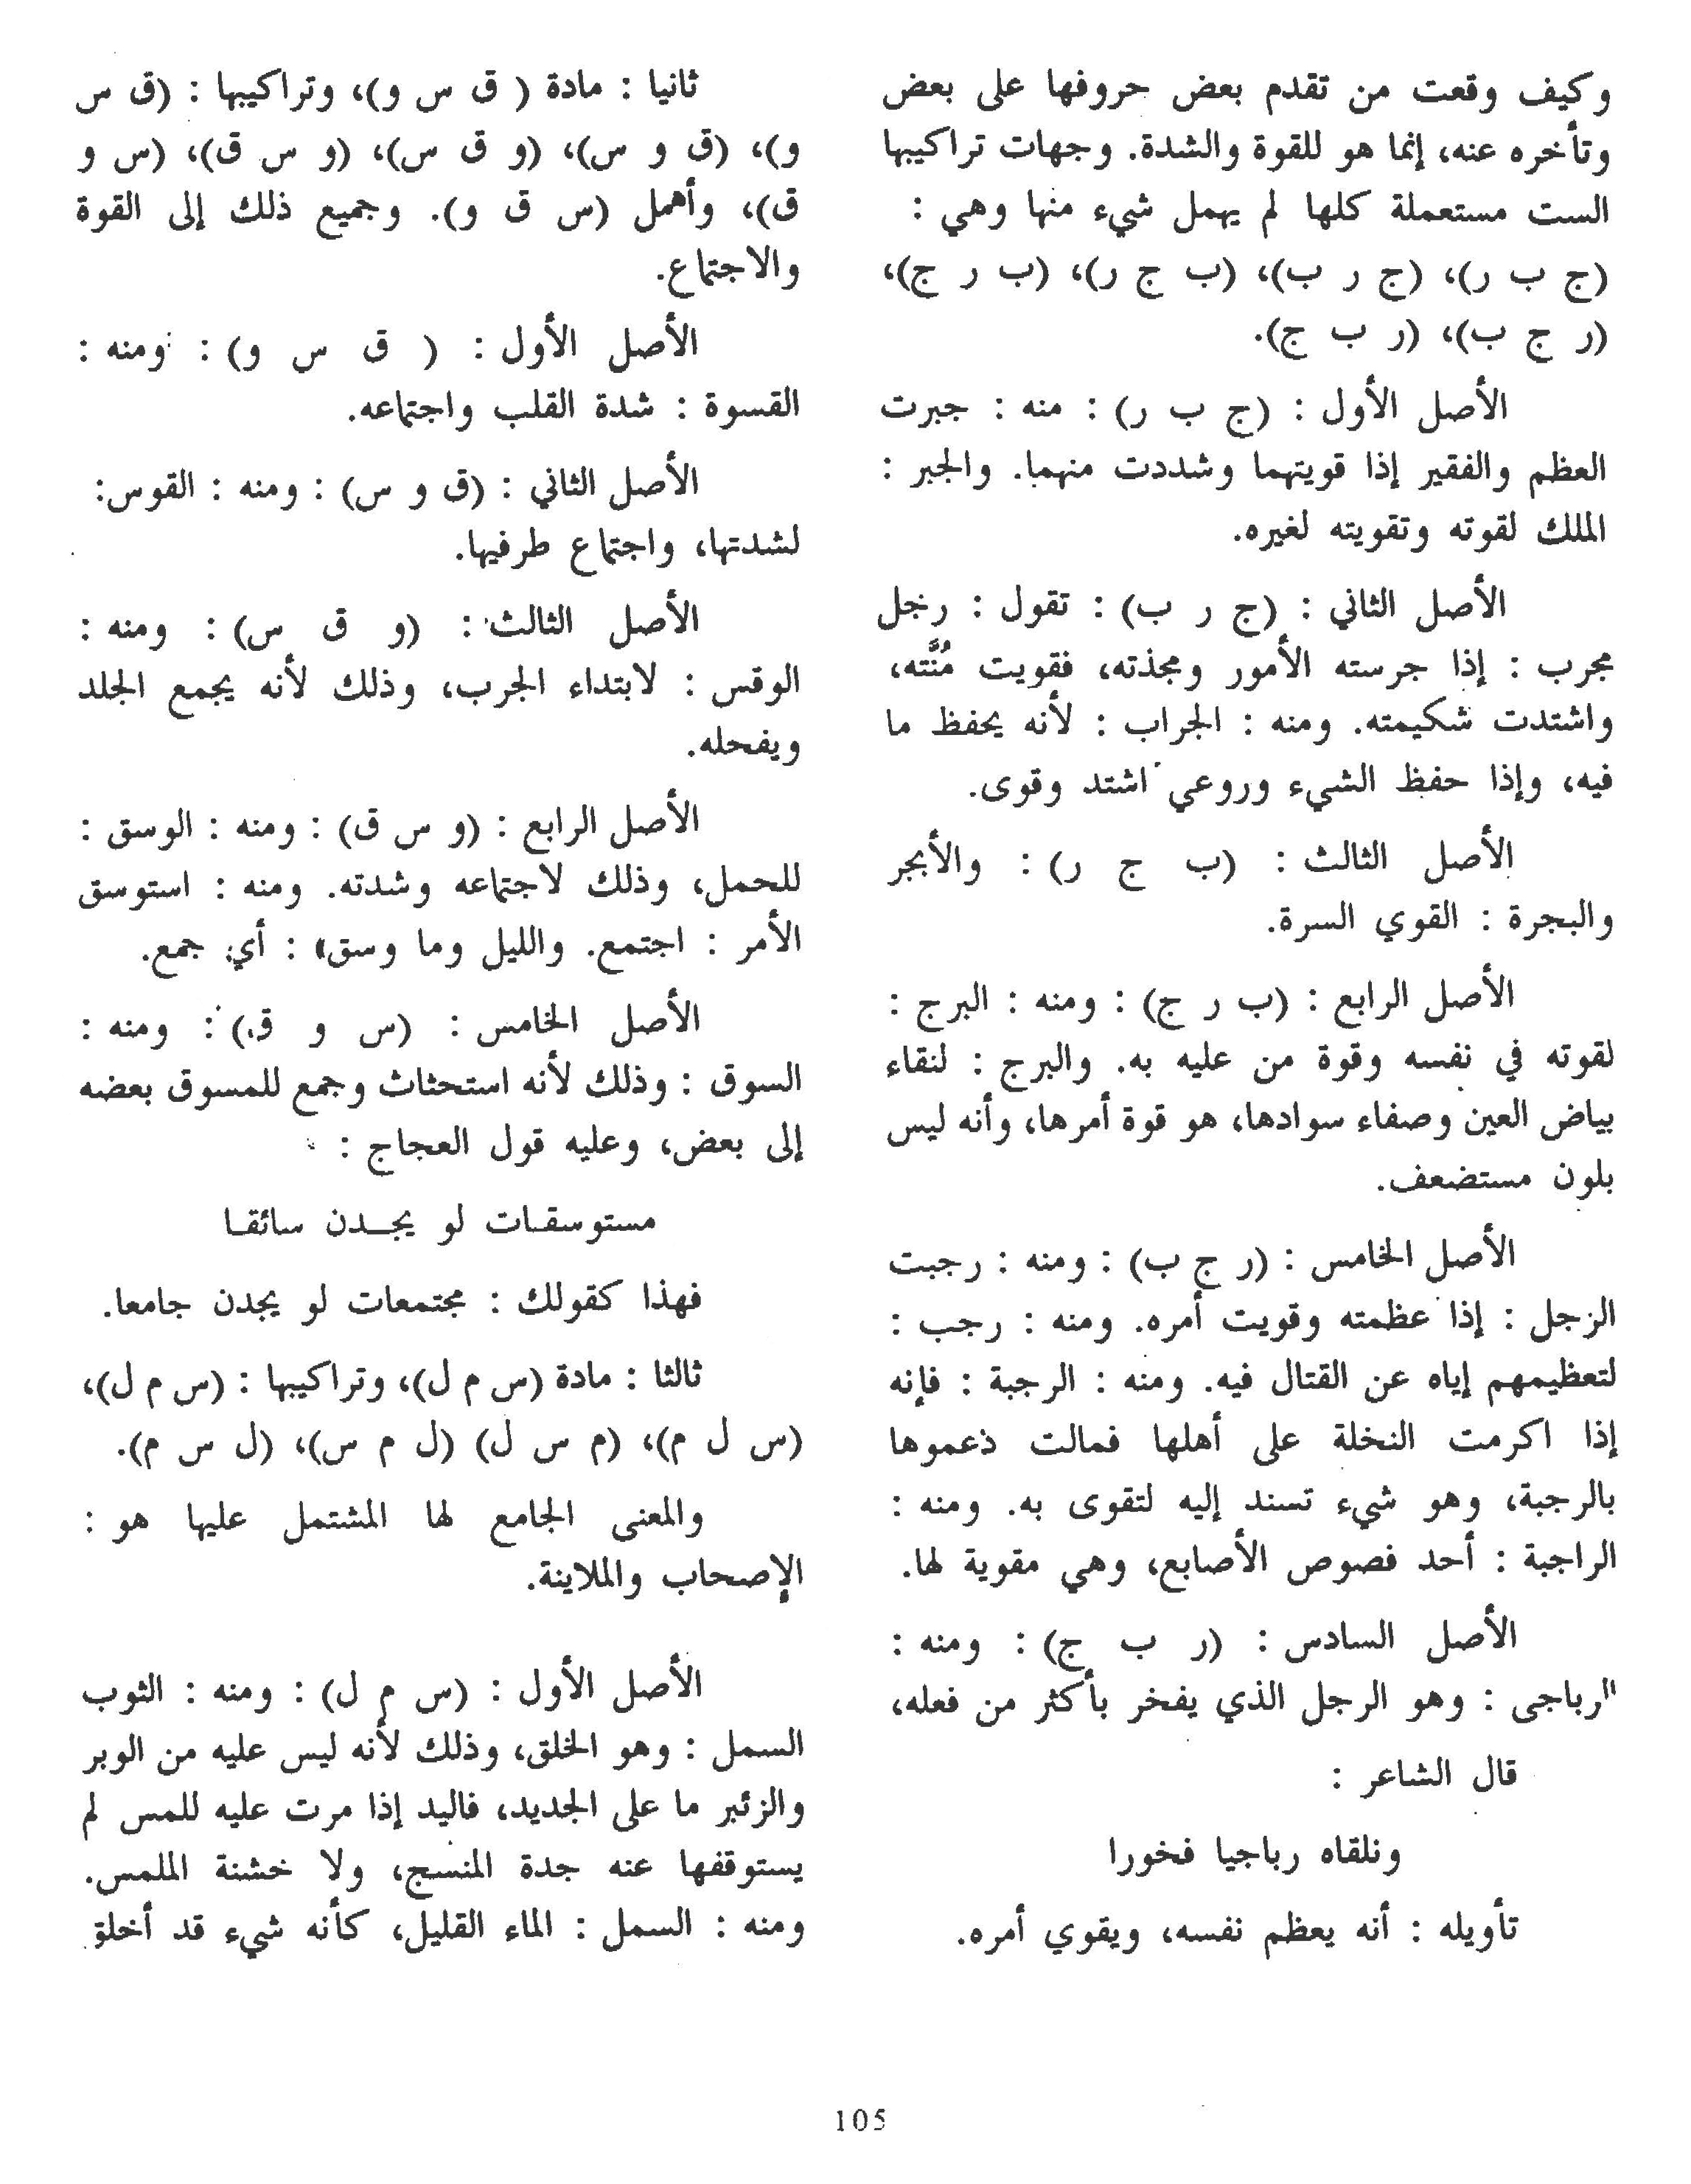 وكيف وقعت من تقدم بعض حروفها على بعض
وتأخره عنه، إنما هو للقوة والشدة. وجهات تراكيبها
الست مستعملة كلها لم يهمل شيء منها وهي :
(ج ب ر)، (ج ر ب)، (ب ج ر)، (ب ر ج)،
(ر ج ب)، (ر ب ج).
الأصل الأول : (ج ب ر) : منه : جبرت
العظم والفقير إذا قويتهما وشددت منهما. والجبر :
الملك لقوته وتقويته لغيره.
الأصل الثاني : (ج ر ب) : تقول : رجل
مجرب : إذا جرسته الأمور ومجذته، فقويت مُنَّته،
واشتدت شكيمته. ومنه : الجراب : لأنه يحفظ ما
فيه، وإذا حفظ الشيء وروعي اشتد وقوى.
الأصل الثالث : (ب ج ر) : والأبجر
والبجرة : القوي السرة.
الأصل الرابع : (ب ر ج) : ومنه : البرج :
لقوته في نفسه وقوة من عليه به. والبرج : لنقاء
بياض العين وصفاء سوادها، هو قوة أمرها، وأنه ليس
بلون مستضعف.
الأصل الخامس : (ر ج ب) : ومنه : رجبت
الرجل : إذا عظمته وقويت أمره. ومنه : رجب :
لتعظيمهم إياه عن القتال فيه. ومنه : الرجبة : فإنه
إذا اكرمت النخلة على أهلها فمالت دعموها
بالرجبة، وهو شيء تسند إليه لتقوى به. ومنه :
الراجبة : أحد فصوص الأصابع، وهي مقوية لها.
الأصل السادس : (ر ب ج) : ومنه :
الرباجى : وهو الرجل الذي يفخر بأكثر من فعله،
قال الشاعر :
ونلقاه رباجيا فخورا
تأويله : أنه يعظم نفسه، ويقوي أمره.
ثانيا : مادة ( ق س و)، وتراكيبها : (ق س
و)، (ق و س)، (و ق س)، (و س ق)، (س و
ق)، وأهمل (س ق و). وجميع ذلك إلى القوة
والاجتماع.
الأصل الأول : ( ق س و) : ومنه :
القسوة : شدة القلب واجتماعه.
الأصل الثاني : (ق و س) : ومنه : القوس:
لشدتها، واجتماع طرفيها.
الأصل الثالث : (و ق س) : ومنه :
الوقس : لابتداء الجرب، وذلك لأنه يجمع الجلد
ويفحله.
الأصل الرابع : (و س ق) : ومنه : الوسق :
للحمل، وذلك لاجتماعه وشدته. ومنه : استوسق
الأمر : اجتمع. والليل وما وسق» : أي جمع.
الأصل الخامس : (س و ق) : ومنه :
السوق : وذلك لأنه استحثاث وجمع للمسوق بعضه
إلى بعض، وعليه قول العجاج :
مستوسقـات لو يجــدن سائقـا
فهذا كقولك : مجتمعات لو يجدن جامعا.
ثالثا : مادة (س م ل)، وتراكيبها : (س م ل)،
(س ل م)، (م س ل) (ل م س)، (ل س م).
والمعنى الجامع لها المشتمل عليها هو :
الإصحاب والملاينة.
الأصل الأول : (س م ل) : ومنه : الثوب
السمل : وهو الخلق، وذلك لأنه ليس عليه من الوبر
والزئبر ما على الجديد، فاليد إذا مرت عليه للمس لم
يستوقفها عنه جدة المنسج، ولا خشنة الملمس.
ومنه : السمل : الماء القليل، كأنه شيء قد أخلق
105